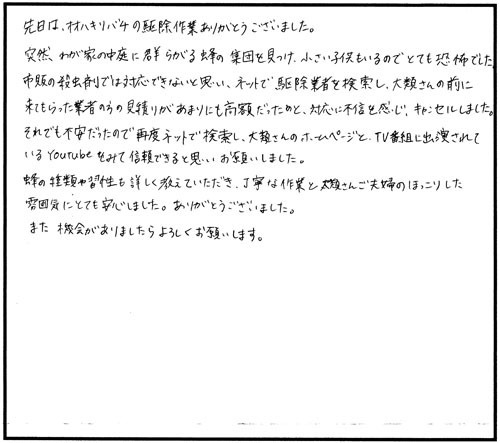 先日は、オオハキリバチの駆除作業ありがとうございました。
突然、わが家の中庭に群らがる蜂の集団を見つけ、小さい子供もいるのでとても恐怖でした。
市販の殺虫剤では対応できないと思い、ネットで駆除業者を検索し、大類さんの前に
来てもらった業者の方の見積りがあまりにも高額だったのと、対応に不信を感じ、キャンセルしました。
それでも不安だったので再度ネットで検索し、大類さんのホームページと、TV番組に出演されて
いるYoutubeをみて信頼できると思いお願いしました。
蜂の種類や習性も詳しく教えていただき、丁寧な作業と大類さんご夫婦のほっこりした
雰囲気にとても安心しました。ありがとうございました。
また機会がありましたらよろしくお願いします。